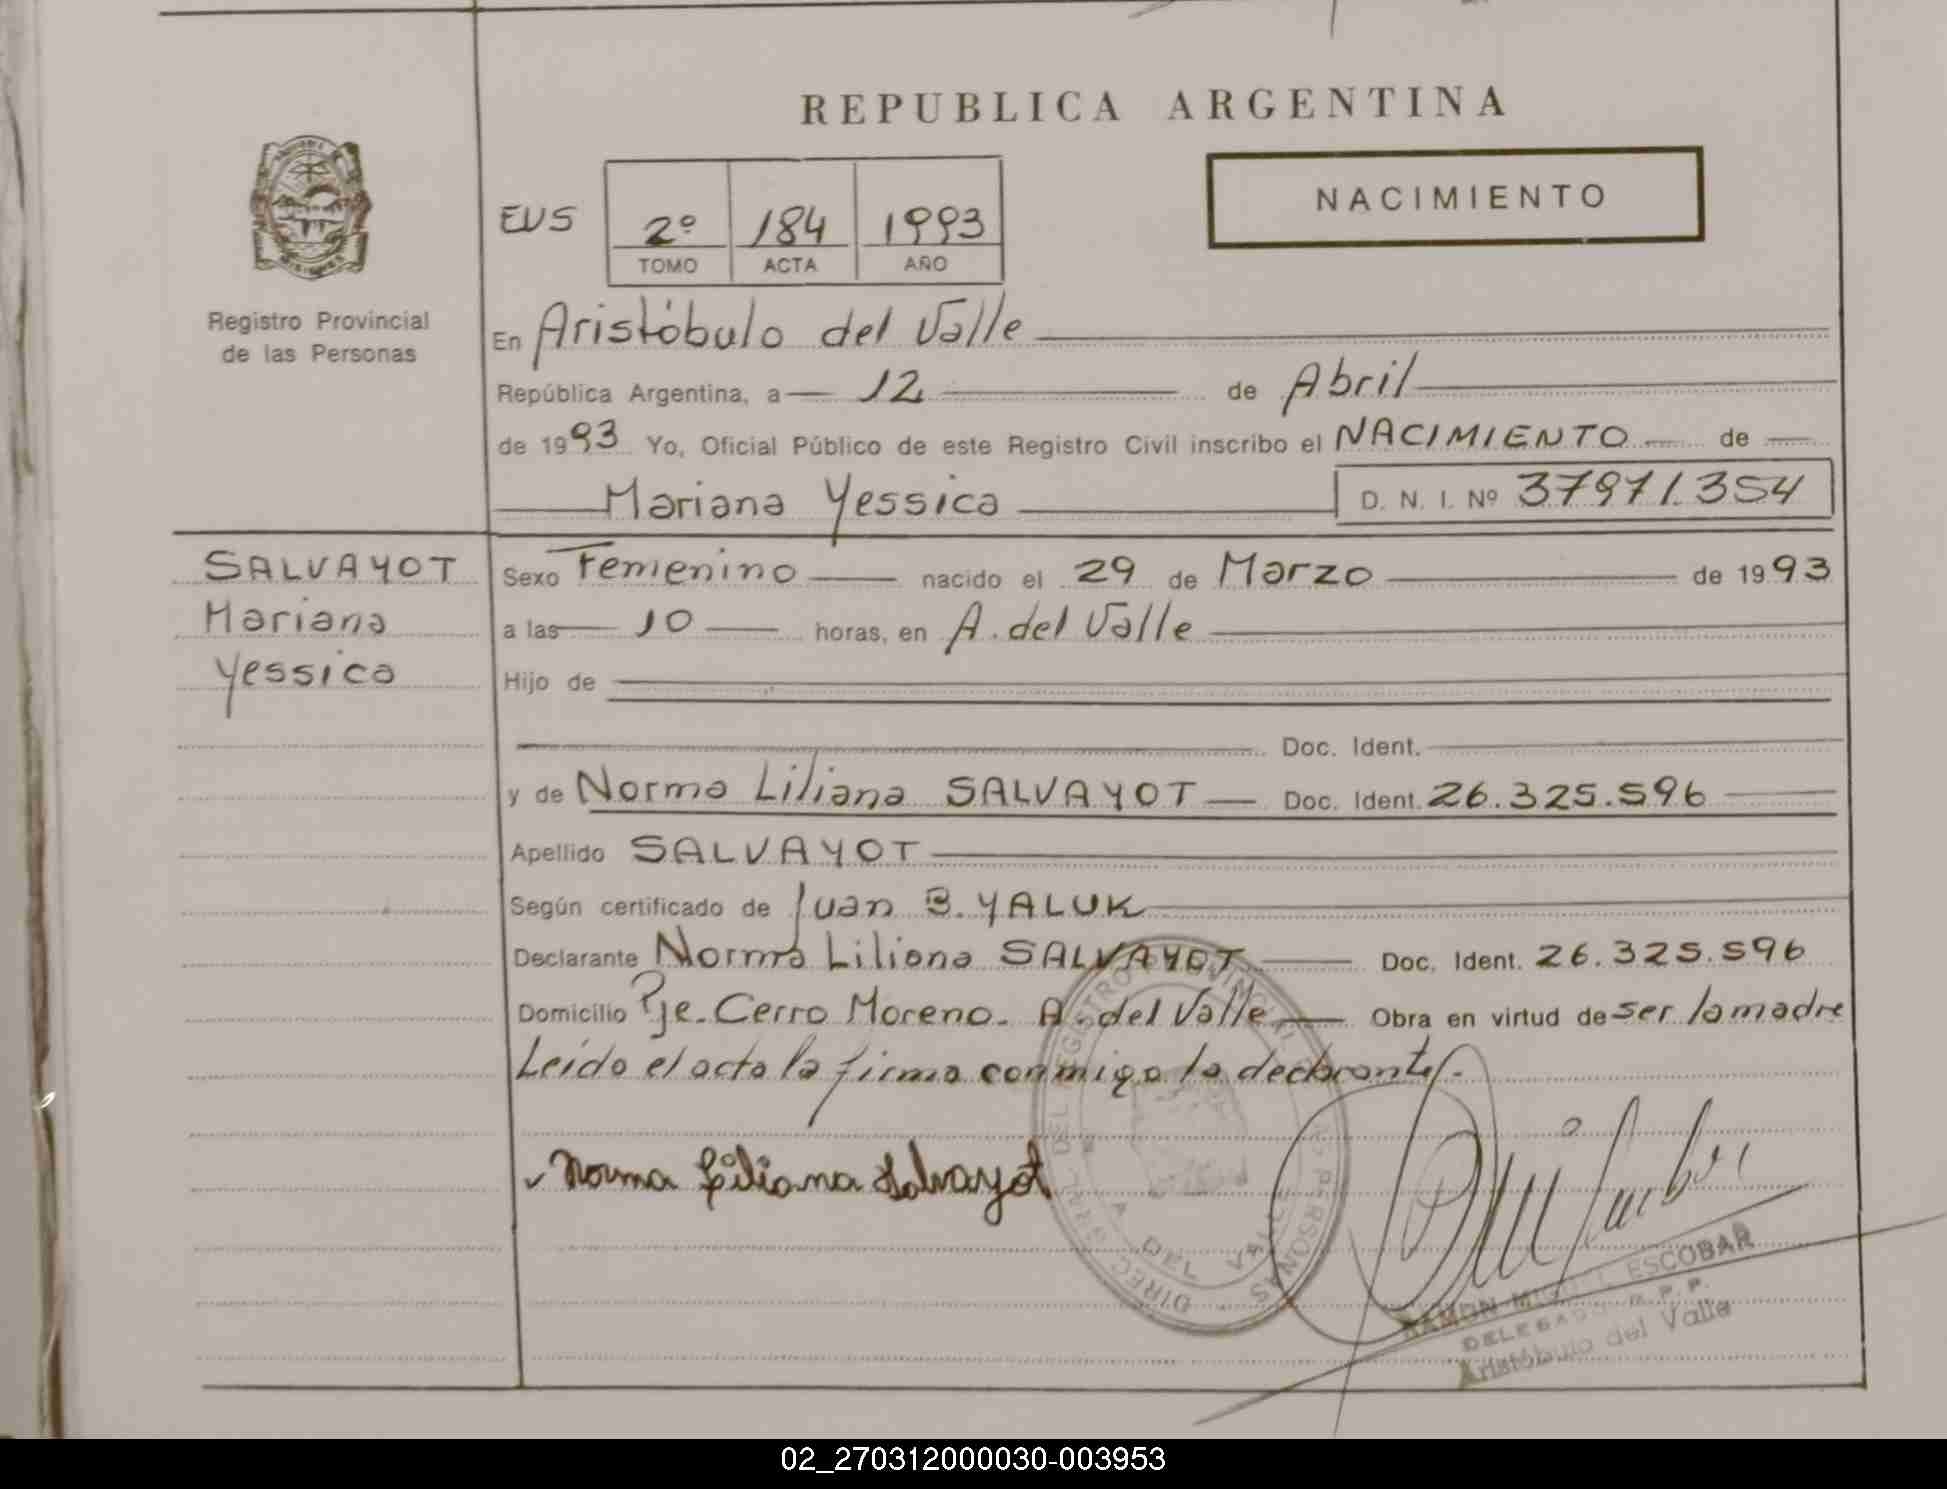 REPUBLICA ARGENTINA
NACIMIENTO
EVS 2º 184 1993
TOMO ACTA AÑO
Registro Provincial
de las Personas
En Aristóbulo del Valle
República Argentina, a 12 de Abril
de 1993 Yo, Oficial Público de este Registro Civil inscribo el NACIMIENTO de
Mariana Yessica D. N. I. Nº 37971.354
SALVAYOT
Mariana
Yessica
Sexo Femenino nacido el 29 de Marzo de 1993
a las 10 horas, en A. del Valle
Hijo de
Doc. Ident.
y de Norma Liliana SALVAYOT Doc. Ident. 26.325.596
Apellido SALVAYOT
Según certificado de Juan B. YALUK
Declarante Norma Liliana SALVAYOT Doc. Ident. 26.325.596
Domicilio Pje. Cerro Moreno. A. del Valle Obra en virtud de ser la madre
Leído el acta la firma conmigo la declarante.
Norma Liliana Salvayot
A. DEL VALLE
RAMON MIGUEL ESCOBAR
DELEGADO R.P.P.
Aristóbulo del Valle
02_270312000030-003953